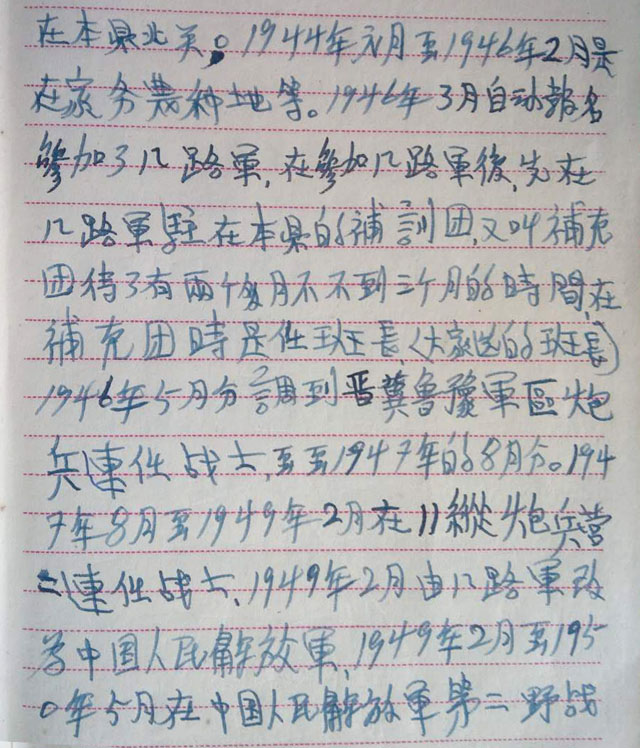 在本県北关。1944年元月至1946年2月是
在家务農种地等。1946年3月自动報名
參加了八路軍,在參加八路軍後,先在
八路軍駐在本県的補訓团,又叫補充
团待了有兩个多月不不到三个月的時間,在
補充团時是任班長,(大家选的班長)
1946年5月分調到晋冀魯豫軍區炮
兵連任战士,至至1947年的8月分。194
7年8月至1949年2月在11縱炮兵营
二連任战士,1949年2月由八路軍改
為中国人民解放軍,1949年2月至195
0年5月在中国人民解放軍第二野战